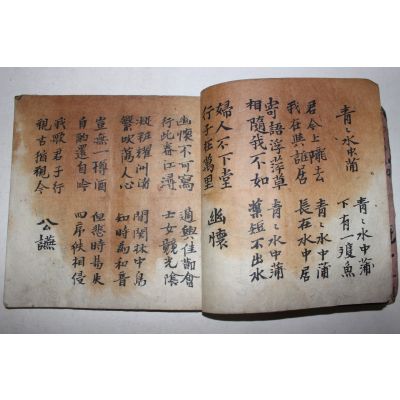 青〻水中蒲
青〻水中蒲
下有一雙魚
君今上隴去
我在與誰居
青〻水中蒲
長在水中居
寄語浮萍草
相隨我不如
青〻水中蒲
葉短不出水
婦人不下堂
行子在萬里
幽懷
幽懷不可寫
行此春江潯
適與佳節會
士女競光陰
凝粧耀洲渚
繁吹蕩人心
間関林中鳥
知時為和音
豈無一樽酒
自酌還自吟
但悲時易失
四序迭相侵
我歌君子行
視古猶視今
公讌